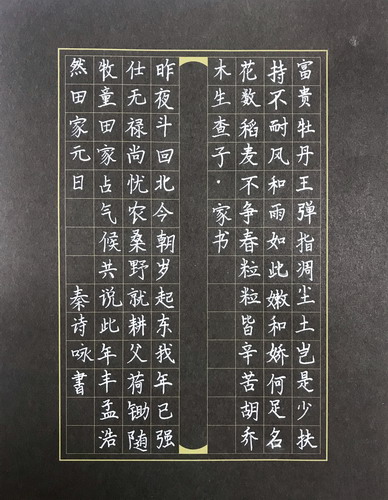 富貴牡丹王弹指凋尘土岂是少扶
持不耐风和雨如此嫩和娇何足名
花数稻麦不争春粒粒皆辛苦胡乔
木生查子·家书
昨夜斗回北今朝岁起东我年已强
仕无禄尚忧农桑野就耕父荷锄随
牧童田家占气候共说此年丰孟浩
然田家元日 秦诗咏書